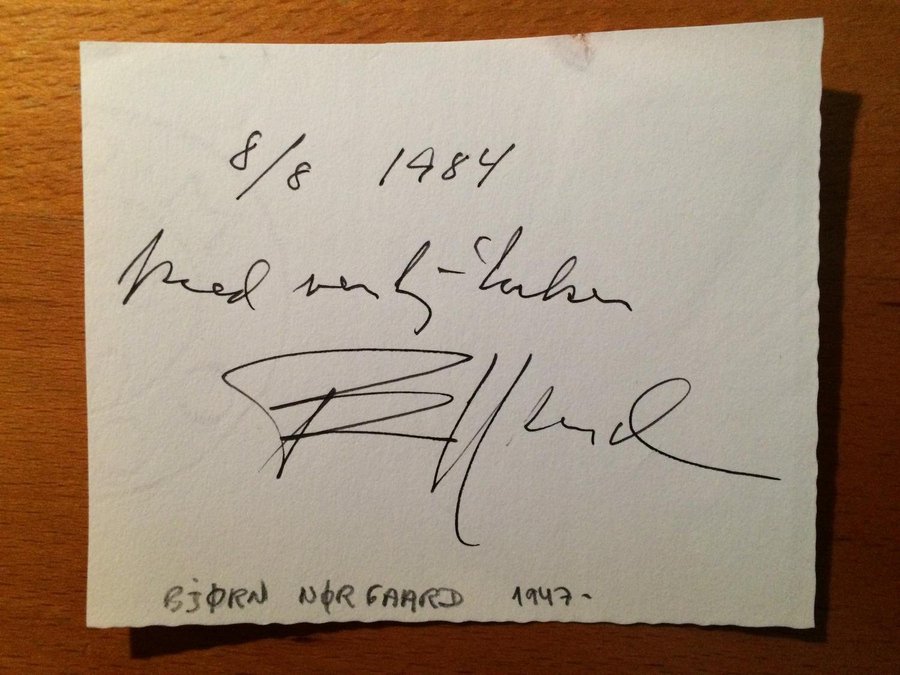 8/8 1984
Med venlig hilsen
BJØRN NØRGAARD 1947-